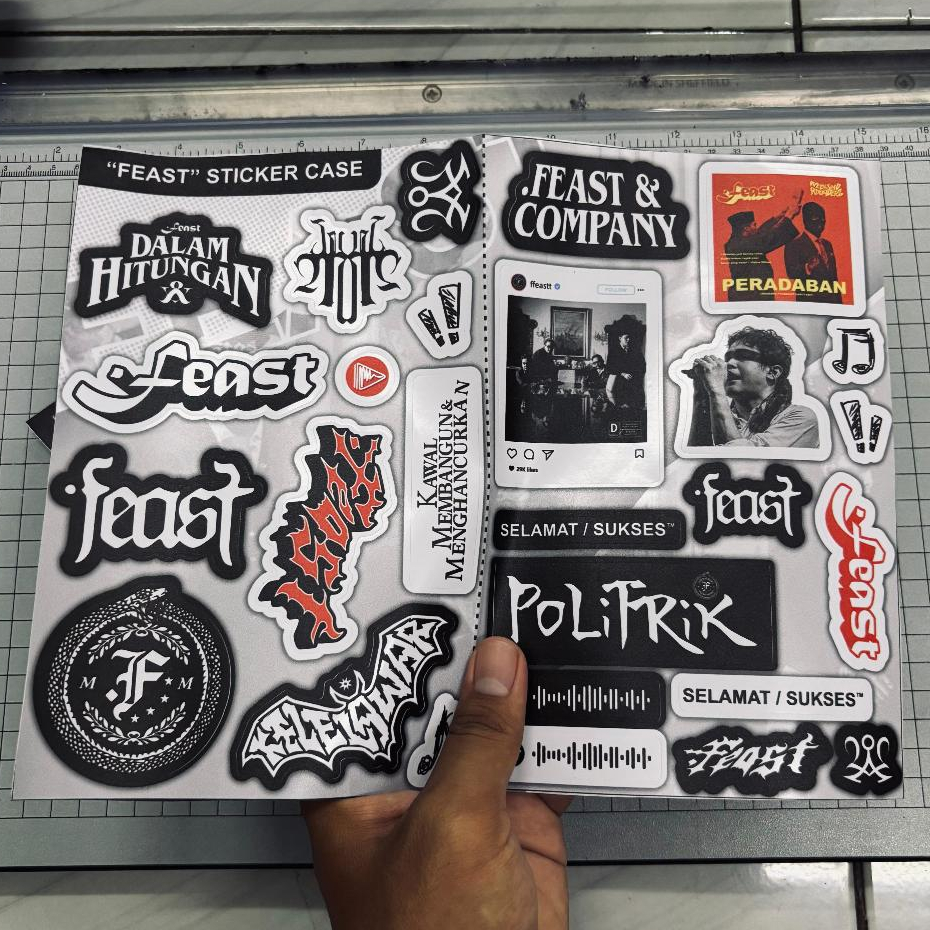 "FEAST" STICKER CASE
.feast
DALAM
HITUNGAN
.feast
.feast
KAWAL
MEMBANGUN &
MENGHANCURKAN
M .F M
.FEAST &
COMPANY
.feast
PERADABAN
ffeastt
FOLLOW
29K likes
SELAMAT / SUKSES™
.feast
.feast
POLiTRiK
SELAMAT / SUKSES™
.feast